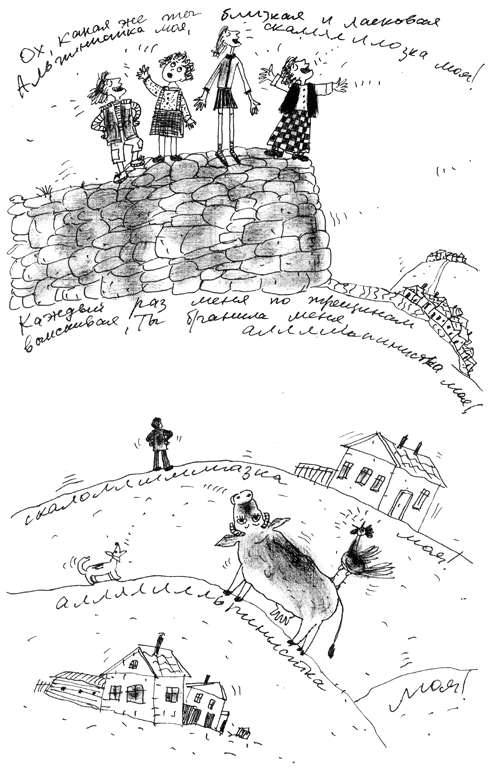 Ох, какая же ты близкая и ласковая
Альпинистка моя, скалллилозка моя!
Каждый раз меня по трещинам
выискивая, Ты бранила меня
аллллльпинистка моя!
скалолллллллазка
моя!
алллллльпинистка
моя!